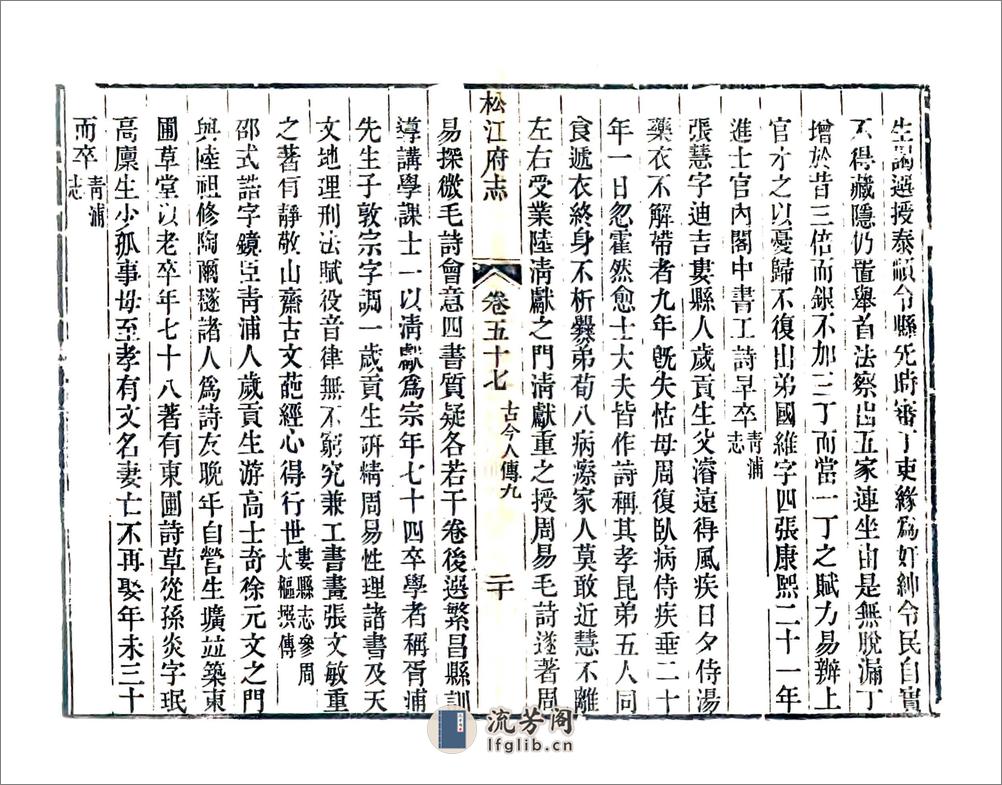 生謁選授泰順令縣先時審丁吏緣爲奸紳令民自實
不得藏隱仍置舉首法察出五家連坐由是無脫漏丁
增於昔三倍而銀不加三丁而當一丁之賦力易辦上
官才之以憂歸不復出弟國維字四張康熙二十一年
進士官內閣中書工詩早卒青浦志
張慧字迪吉婁縣人歲貢生父濬遠得風疾日夕侍湯
藥衣不解帶者九年旣失怙母周復臥病侍疾垂二十
年一日忽霍然愈士大夫皆作詩稱其孝昆弟五人同
食遞衣終身不析爨弟荀八病瘵家人莫敢近慧不離
左右受業陸清獻之門清獻重之授周易毛詩遂著周
松江府志 卷五十七 古今人傳九 二十
易探微毛詩會意四書質疑各若干卷後選繁昌縣訓
導講學課士一以清獻爲宗年七十四卒學者稱胥浦
先生子敦宗字調一歲貢生研精周易性理諸書及天
文地理刑法賦役音律無不窮究兼工書畫張文敏重
之著有靜敬山齋古文葩經心得行世婁縣志參周大樞撰傳
邵式誥字鏡臣靑浦人歲貢生游高士奇徐元文之門
與陸祖修陶爾穟諸人爲詩友晚年自營生壙並築東
圃草堂以老卒年七十八著有東圃詩草從孫炎字珉
高廩生少孤事母至孝有文名妻亡不再娶年未三十
而卒青浦志
流芳阁
lfglib.cn